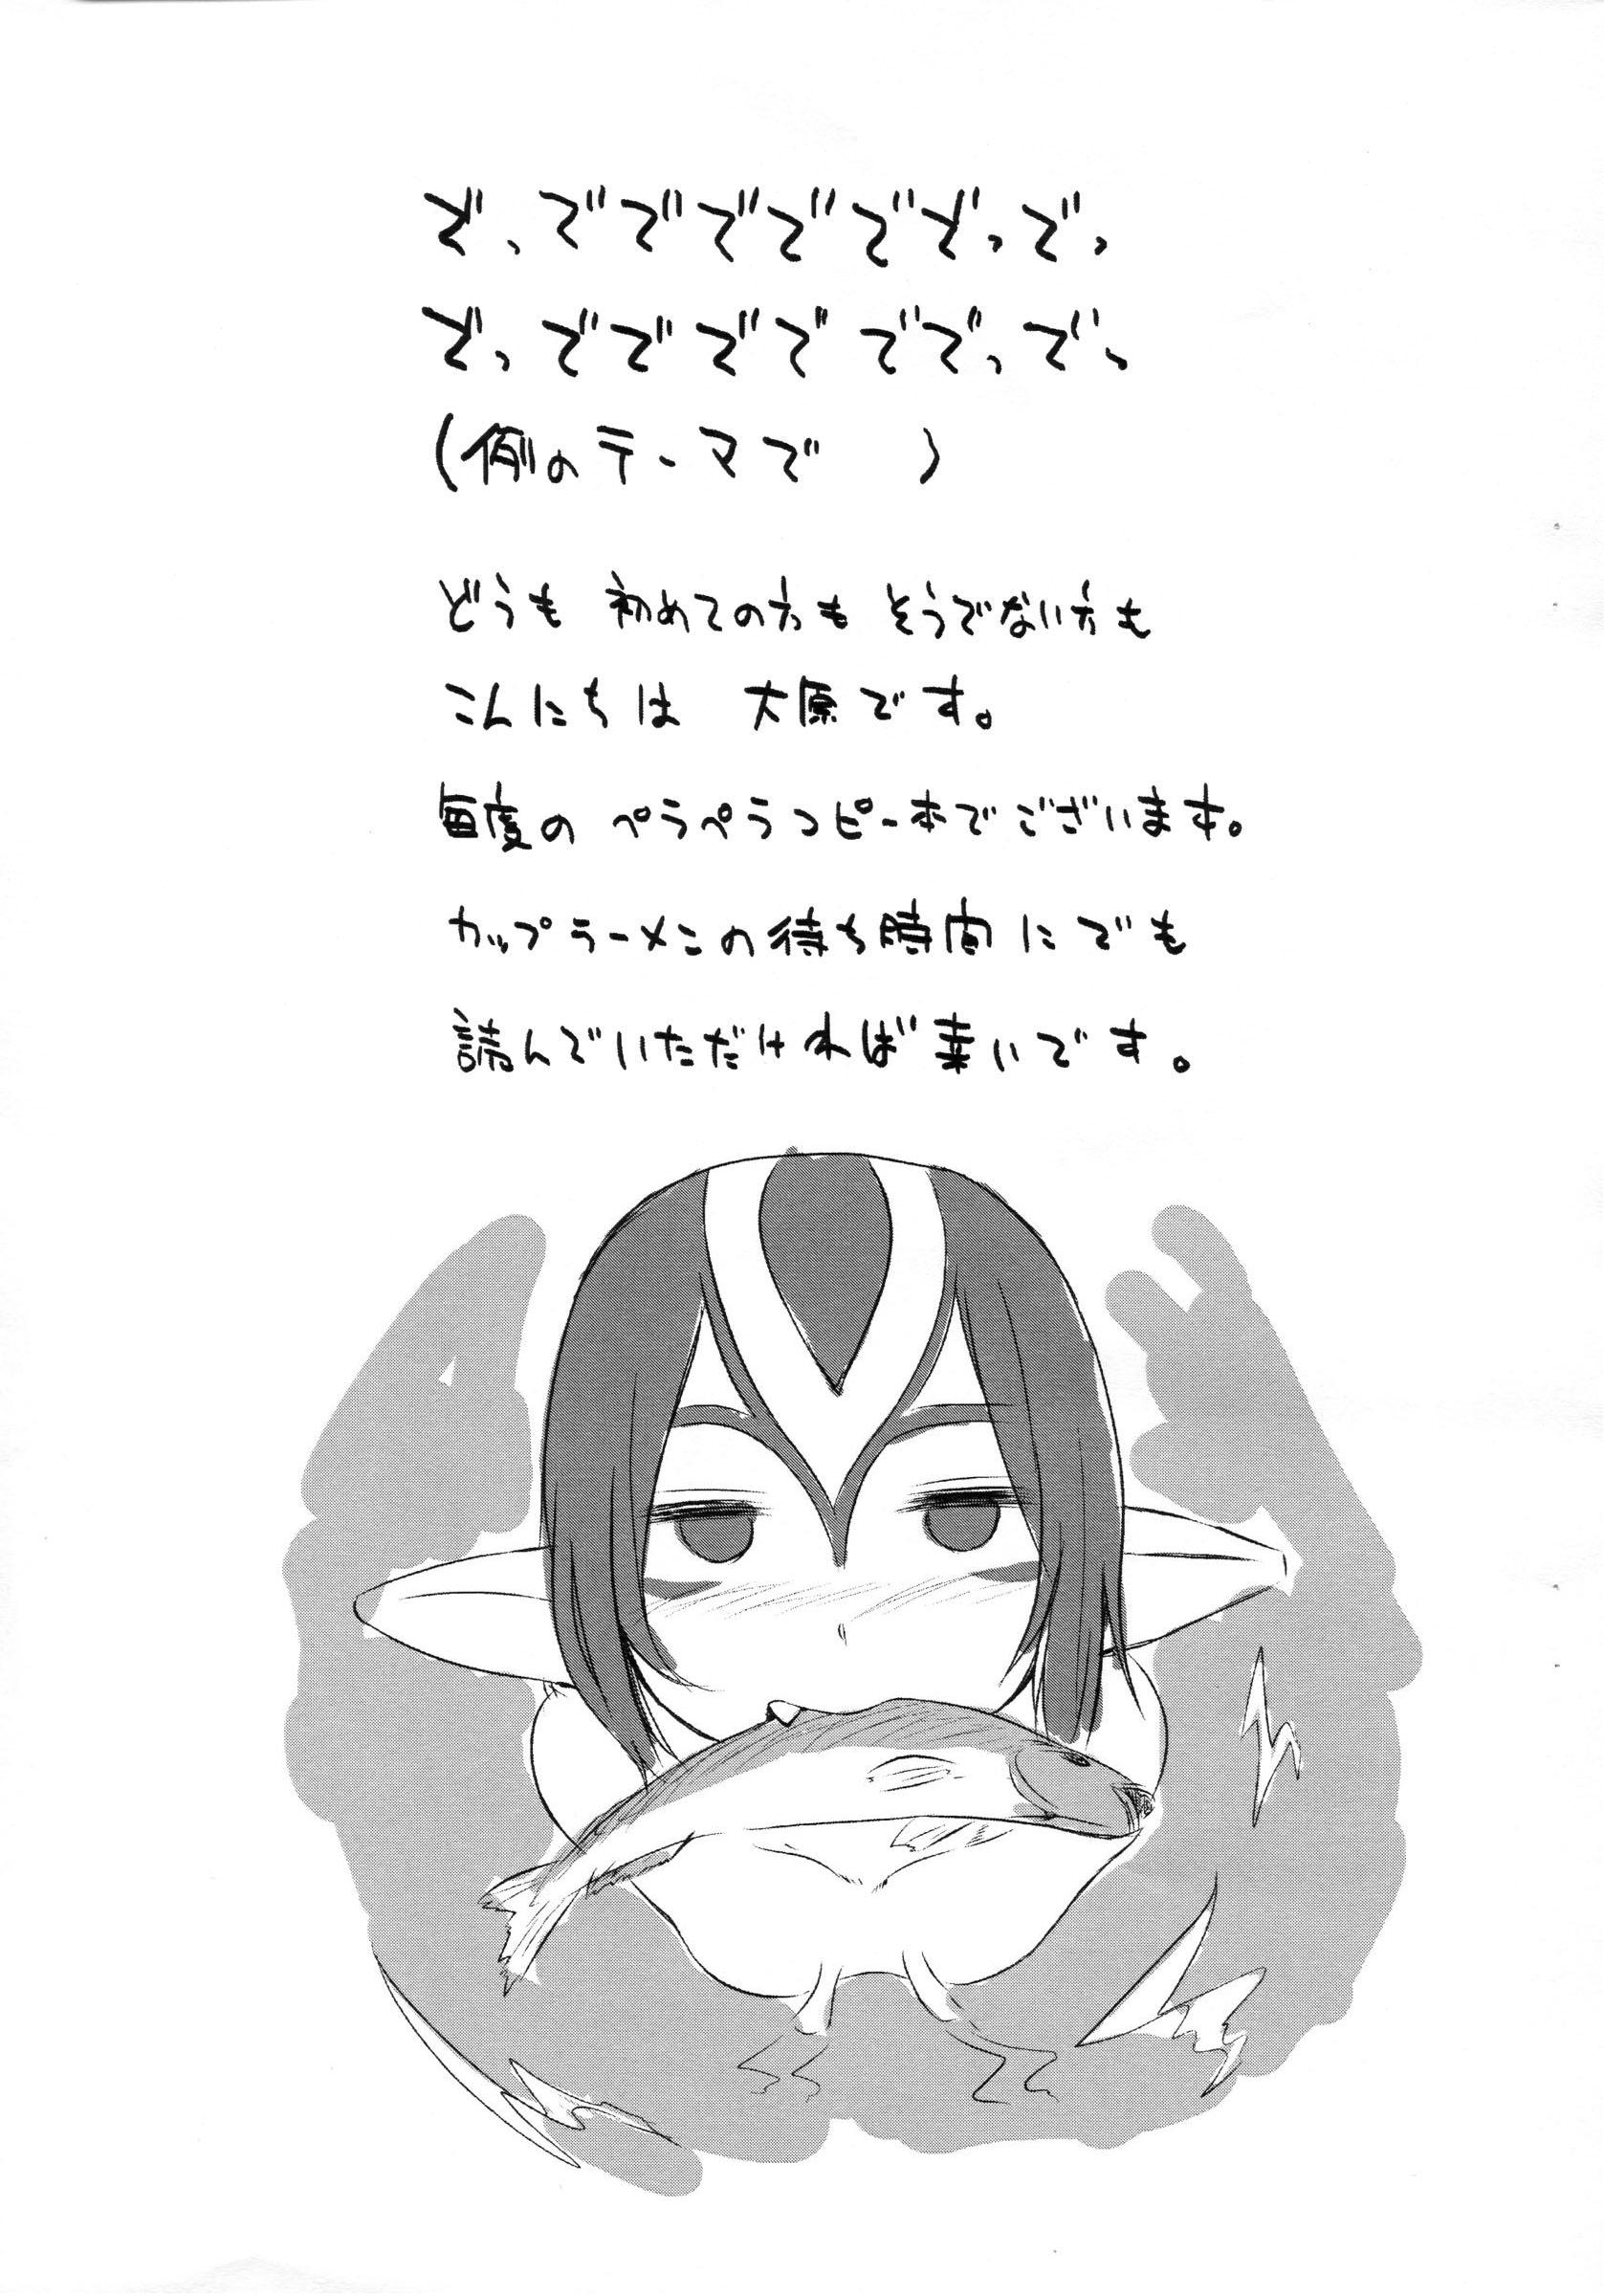 で、でででででで、で、
で、ででででででっで、
(例のテーマで　　)
どうも 初めての方も そうでない方も
こんにちは 大原です。
毎度の ペラペラコピー本でございます。
カップラーメンの待ち時間にでも
読んでいただければ幸いです。